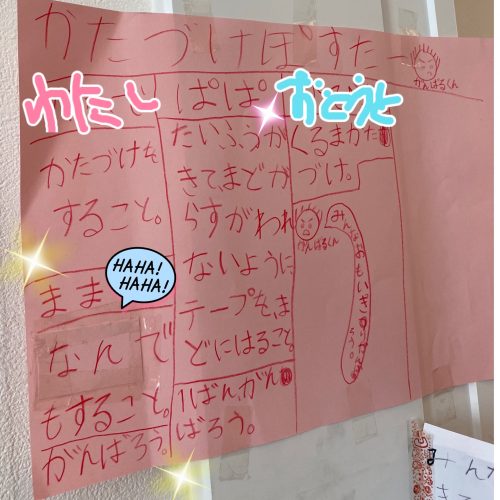 かたづけぽすたー
がんばるくん
わたし
かたづけを
すること。
まま
HAHA!
HAHA!
なんで
もすること。
がんばろう。
ぱぱ
たいふうが
きて、まどが
らすがわれ
ないように
テープをま
どにはること。
1ばん、がん
ばろう。
おとうと
くるまかた
づけ。
がんばるくん